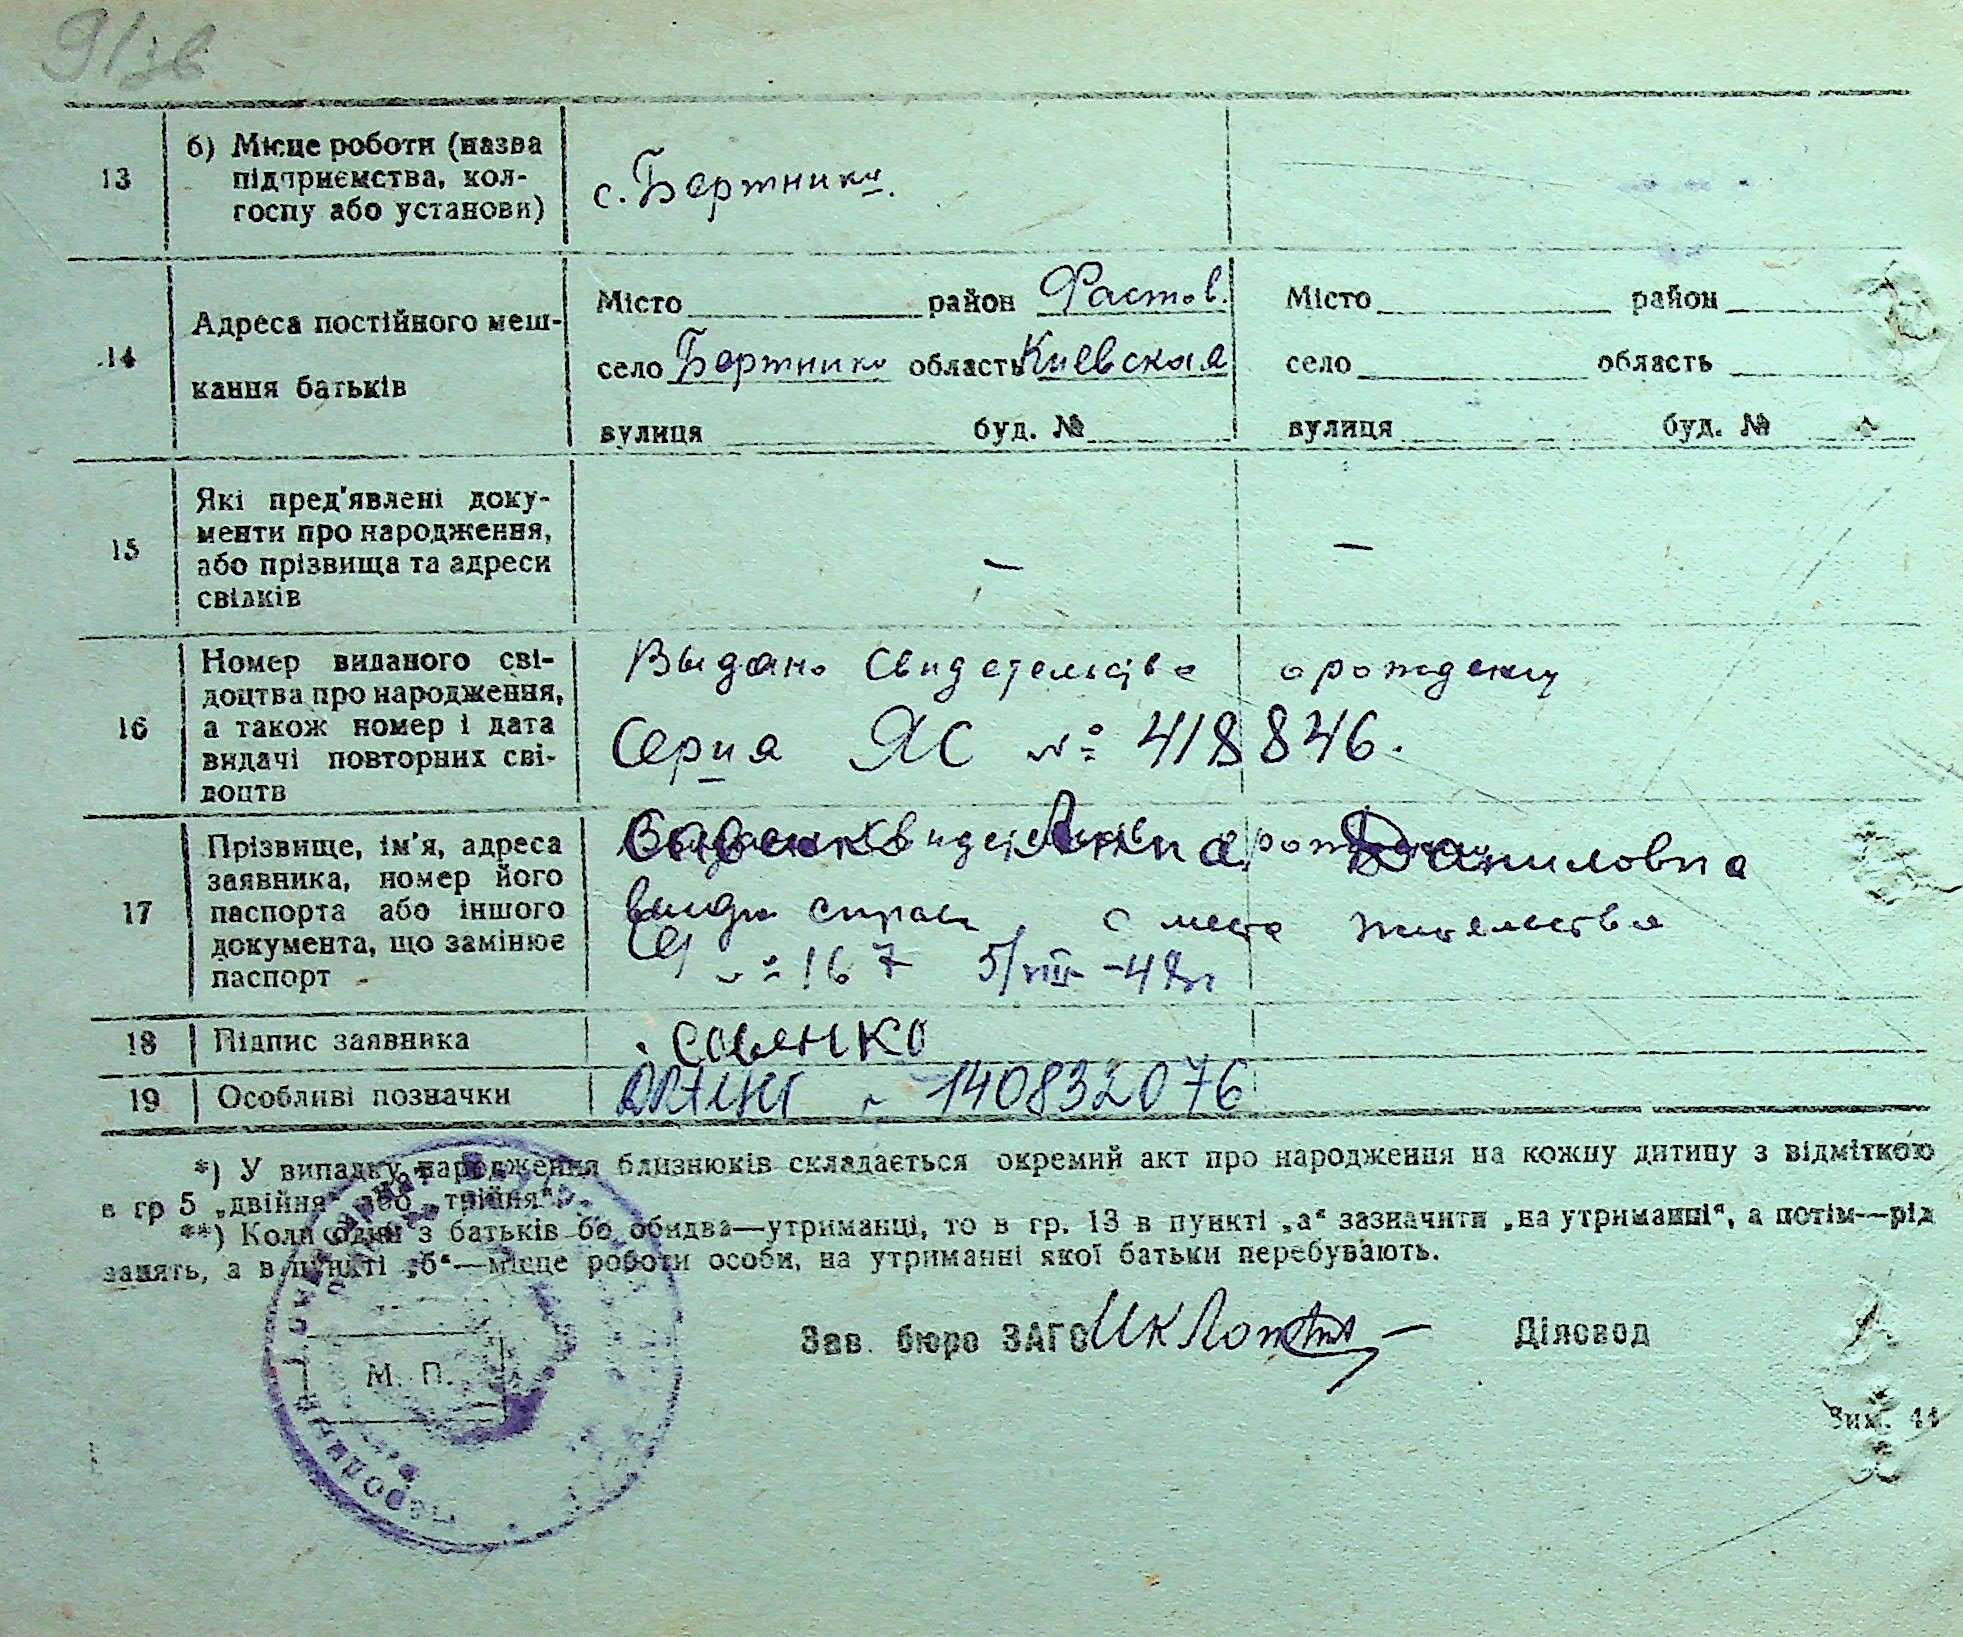 13
б) Місце роботи (назва
підприємства, кол-
госпу або установи)
с. Бертники.
14
Адреса постійного меш-
кання батьків
Місто район Фастов.
село Бертники область Киевская
вулиця буд. №
Місто район
село область
вулиця буд. №
15
Які пред'явлені доку-
менти про народження,
або прізвища та адреси
свідків
—
—
16
Номер виданого сві-
доцтва про народження,
а також номер і дата
видачі повторних сві-
доцтв
Выдано свидетельство о рождении
Серия ЯС № 418846.
17
Прізвище, ім'я, адреса
заявника, номер його
паспорта або іншого
документа, що замінює
паспорт
Савенко Анна Даниловна
с места жительства
№ 167 5/VIII-49г
18
Підпис заявника
Савенко
19
Особливі позначки
140832076
*) У випадку народження близнюків складається окремий акт про народження на кожну дитину з відміткою
в гр 5 „двійня" або „трійня".
**) Коли один з батьків бо обидва—утриманці, то в гр. 13 в пункті „а" зазначити „на утриманні", а потім—рід
занять, а в пункті „б"—місце роботи особи, на утриманні якої батьки перебувають.
Зав. бюро ЗАГС
Діловод
М. П.
Зам. 44